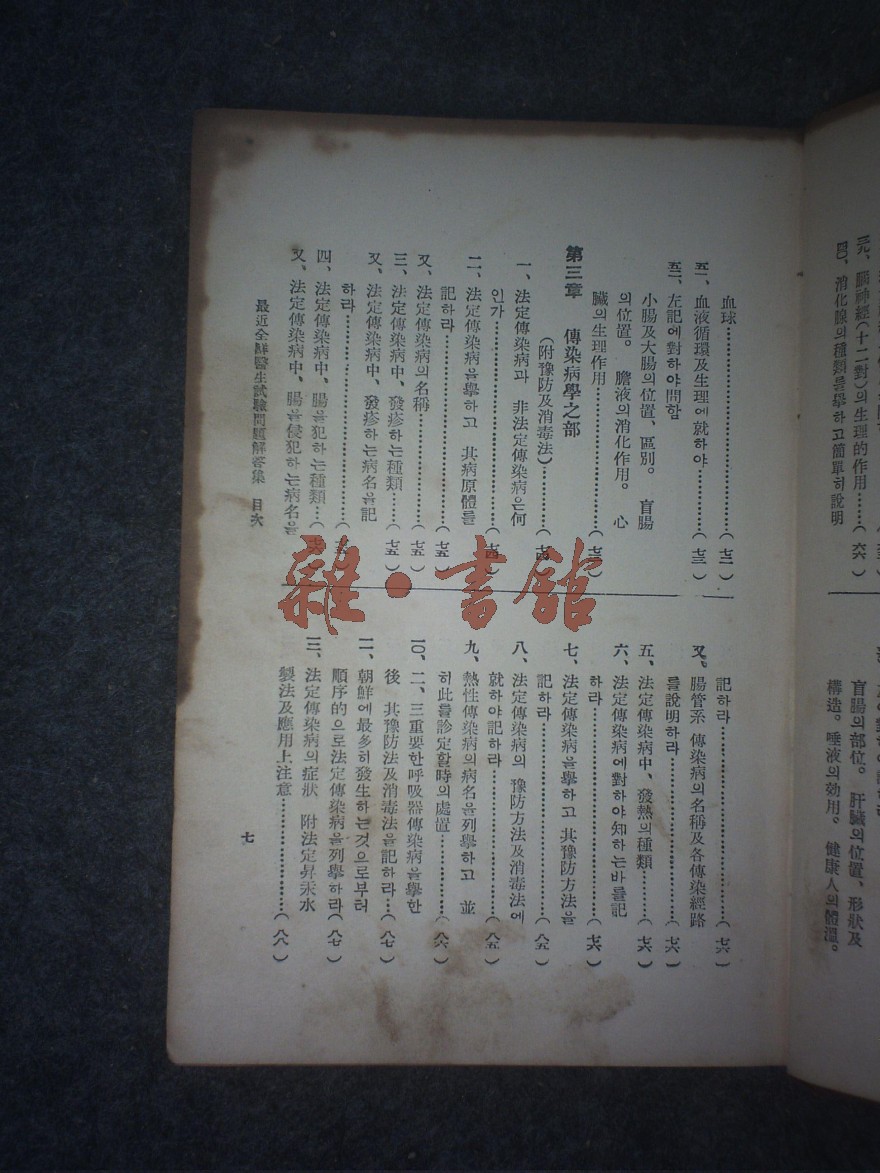 元、腦神經(十二對)의生理的作用……
四、消化腺의種類를擧하고簡單히說明……(六六)
盲腸의部位。肝臟의位置、形狀及
構造。唾液의効用。健康人의體溫。
血球……(七二)
五一、血液循環及生理에就하야……(七三)
五二、左記에對하야問함
小腸及大腸의位置、區別。盲腸
의位置。膽液의消化作用。心
臟의生理作用……(七三)
第三章 傳染病學之部
(附豫防及消毒法)……(七四)
一、法定傳染病과 非法定傳染病은何
인가……(七四)
二、法定傳染病을擧하고 其病原體를
記하라……(七五)
又、法定傳染病의名稱……(七五)
三、法定傳染病中、發疹하는種類……(七五)
又、法定傳染病中、發疹하는病名을記
하라……(七五)
四、法定傳染病中、腸을犯하는種類…(七六)
又、法定傳染病中、腸을侵犯하는病名을
記하라……(七六)
又、腸管系 傳染病의名稱及各傳染經路
를說明하라……(七六)
五、法定傳染病中、發熱의種類……(七六)
六、法定傳染病에對하야知하는바를記
하라……(七六)
七、法定傳染病을擧하고其豫防方法을
記하라……(八五)
八、法定傳染病의 豫防方法及消毒法에
就하야記하라……(八五)
九、熱性傳染病의病名을列擧하고 並
히此를診定할時의處置……(八六)
一〇、二、三重要한呼吸器傳染病을擧한
後 其豫防法及消毒法을記하라…(八七)
一一、朝鮮에最多히發生하는것으로부터
順序的으로法定傳染病을列擧하라(八七)
一三、法定傳染病의症狀 附法定昇汞水
製法及應用上注意……(八八)
最近全鮮醫生試驗問題解答集 目次
七
雜•書館